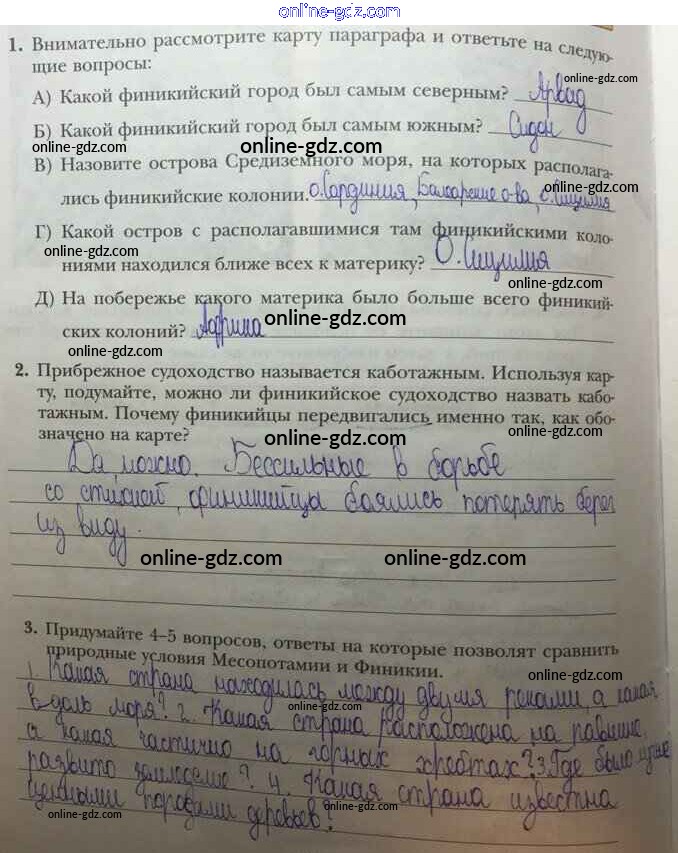 online-gdz.com
1. Внимательно рассмотрите карту параграфа и ответьте на следую-
щие вопросы:
online-gdz.com
А) Какой финикийский город был самым северным? Арвад
Б) Какой финикийский город был самым южным? Сидон
online-gdz.com online-gdz.com online-gdz.com
В) Назовите острова Средиземного моря, на которых распола-
online-gdz.com
лись финикийские колонии. о. Сардиния, Балеарские о-ва, о. Сицилия
Г) Какой остров с располагавшимися там финикийскими коло-
online-gdz.com
ниями находился ближе всех к материку? О. Сицилия
online-gdz.com
Д) На побережье какого материка было больше всего финикий-
online-gdz.com
ских колоний? Африка
online-gdz.com
2. Прибрежное судоходство называется каботажным. Используя кар-
ту, подумайте, можно ли финикийское судоходство назвать кабо-
тажным. Почему финикийцы передвигались именно так, как обо-
значено на карте?
online-gdz.com online-gdz.com
Да, можно. Бессильные в борьбе
со стихией, финикийцы боялись потерять берег
из виду.
online-gdz.com online-gdz.com
3. Придумайте 4–5 вопросов, ответы на которые позволят сравнить
природные условия Месопотамии и Финикии.
online-gdz.com online-gdz.com
1. Какая страна находилась между двумя реками, а какая
вдоль моря? 2. Какая страна расположена на равнине,
online-gdz.com
а какая частично на горных хребтах? 3. Где было
развито земледелие? 4. Какая страна известна
online-gdz.com
ценными породами деревьев?
online-gdz.com